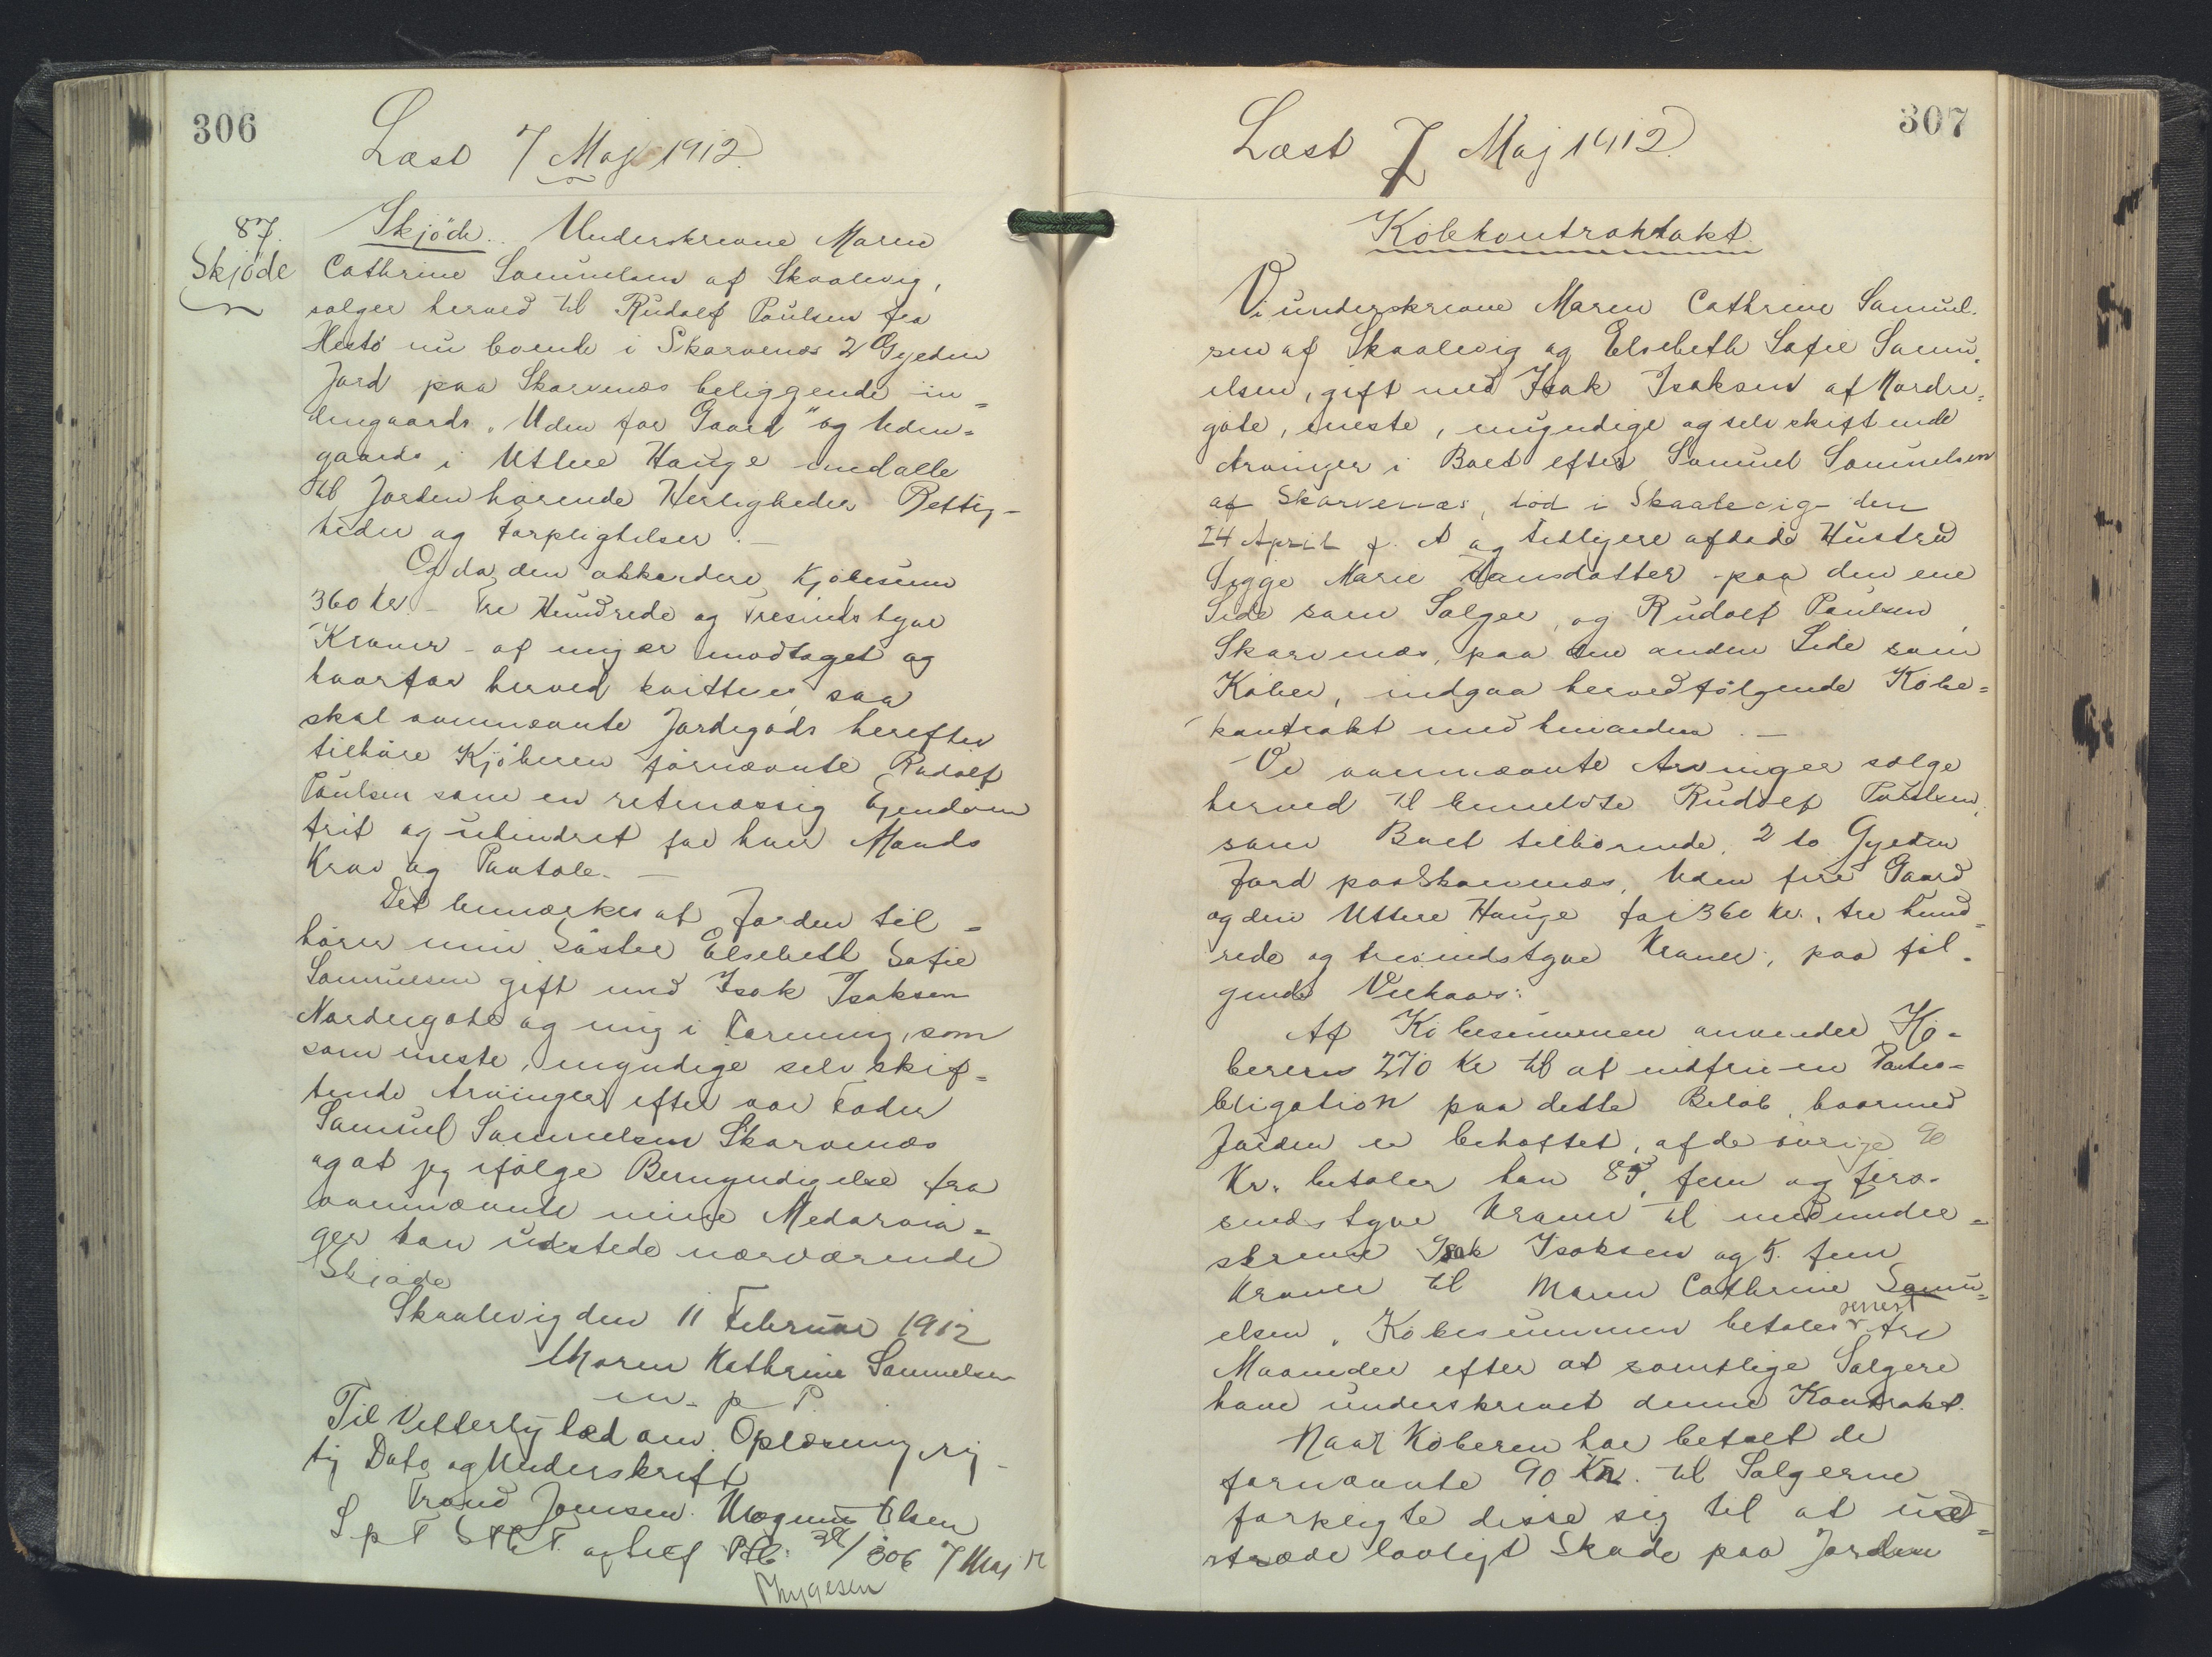 306
Læst 7 Maj 1912.
87.
Skjöde
Skjöde. Underskrevne Maren
Cathrine Samuelsen af Skaalevig,
sælger herved til Rudolf Poulsen fra
Hestö nu boende i Skarvenæs 2 Gyeden
Jord paa Skarvenæs beliggende in=
dengaards „Uden for Gaard" og Uden=
gaards i Uttere Hauge med alle
til Jorden hørende Herligheder Rettig-
heder og Forpligtelser. —
Og da den akkordere Kjøbesum
360 Kr. - Tre Hundrede og Tresindstyve
Kroner - af mig er modtaget og
hvorfor herved kvitteres, saa
skal ovennævnte Jordegods herefter
tilhøre Kjøberen førnævnte Rudolf
Poulsen som en retmæssig Ejendom
frit og uhindret for hver Mands
Krav og Paatale. —
Det bemærkes at Jorden til=
hører min Søster Elsebeth Sofie
Samuelsen gift med Isak Isaksen
Nordregøte og mig i Forening, som
som eneste, myndige selv skif=
tende Arvinger efter vor Fader
Samuel Samuelsen Skarvenæs
og at jeg ifølge Bemyndigelse fra
ovennævnte mine Medarvin=
ger kan udstede nærværende
Skjøde
Skaalevig den 11 Februar 1912
Maren Kathrine Samuelsen
m. p. P.
Til Vitterlighed om Oplæsning rig-
tig Dato og Underskrift
Trond Joensen. Mogens Olsen
38/306 7 Maj 12
Thygesen
307
Læst 7 Maj 1912.
Köbekontraktakt.
Vi underskrevne Maren Cathrine Samuel-
sen af Skaalevig og Elsebeth Sofie Samu=
elsen, gift med Isak Isaksen af Nordre=
gøte, eneste, myndige og selv skiftende
Arvinger i Boet efter Samuel Samuelsen
af Skarvenæs, død i Skaalevig den
24 April f. A og tidligere afdøde Hustru
Sigge Marie Hansdatter - paa den ene
Side som Sælger, og Rudolf Poulsen,
Skarvenæs, paa den anden Side som
Køber, indgaa herved følgende Købe=
kontrakt med hinanden. —
Vi ovennævnte Arvinger sælge
herved til bemeldte Rudolf Poulsen,
som Boet tilhørende, 2 to Gyeden
Jord paa Skarvenæs, Uden fire Gaard
og den Uttere Hauge for 360 Kr., tre hund=
rede og tresindstyve Kroner, paa føl-
gende Vilkaar:
Af Købesummen anvender Kø-
beren 270 Kr til at indfri en Panteo=
bligation paa dette Beløb, hvormed
Jorden er behæftet, af de øvrige 90
Kr. betaler han 85, fem og firs-
sindstyve Kroner til medunder=
skrevne Isak Isaksen og 5. fem
Kroner til Maren Cathrine Samu=
elsen. Købesummen betales senest tre
Maaneder efter at samtlige Sælgere
have underskrevet denne Kontrakt.
Naar Køberen har betalt de
fornævnte 90 Kr. til Sælgerne
forpligte disse sig til at ud=
stæde lovligt Skøde paa Jorden